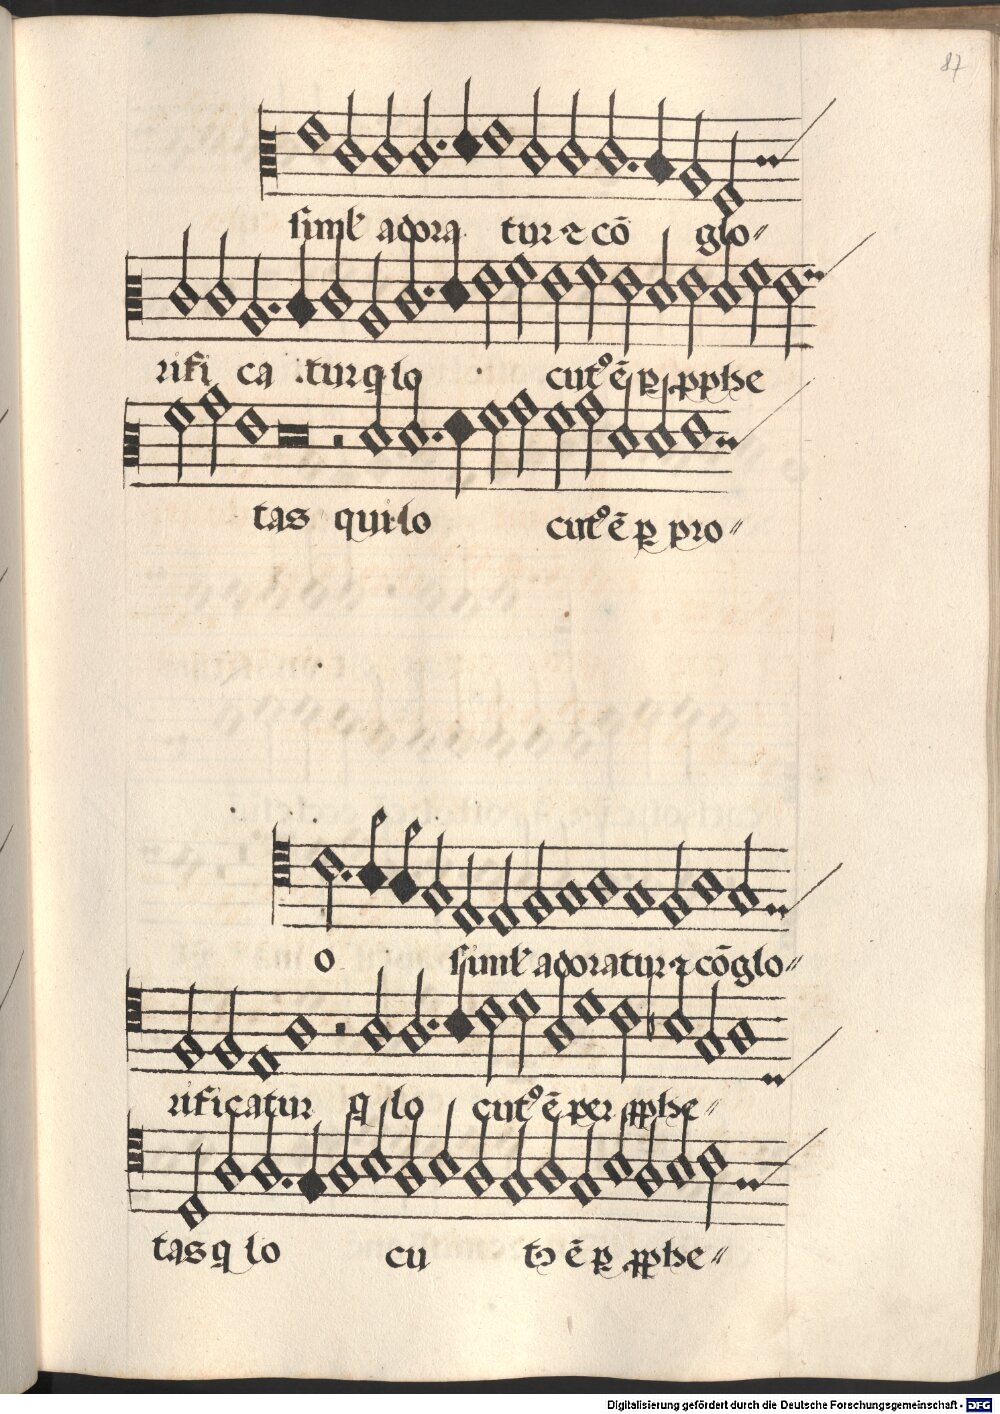 87
siml' adora tur ⁊ cō glo-
rifi ca tur q̄ lo cut⁹ ē ꝑ ꝓphe
tas qui lo cut⁹ ē ꝑ pro-
o siml' adoratur ⁊ cō glo-
rificatur q̄ lo cut⁹ ē per ꝓphe-
tas q̄ lo cu t⁹ ē ꝑ ꝓphe-
Digitalisierung gefördert durch die Deutsche Forschungsgemeinschaft - DFG